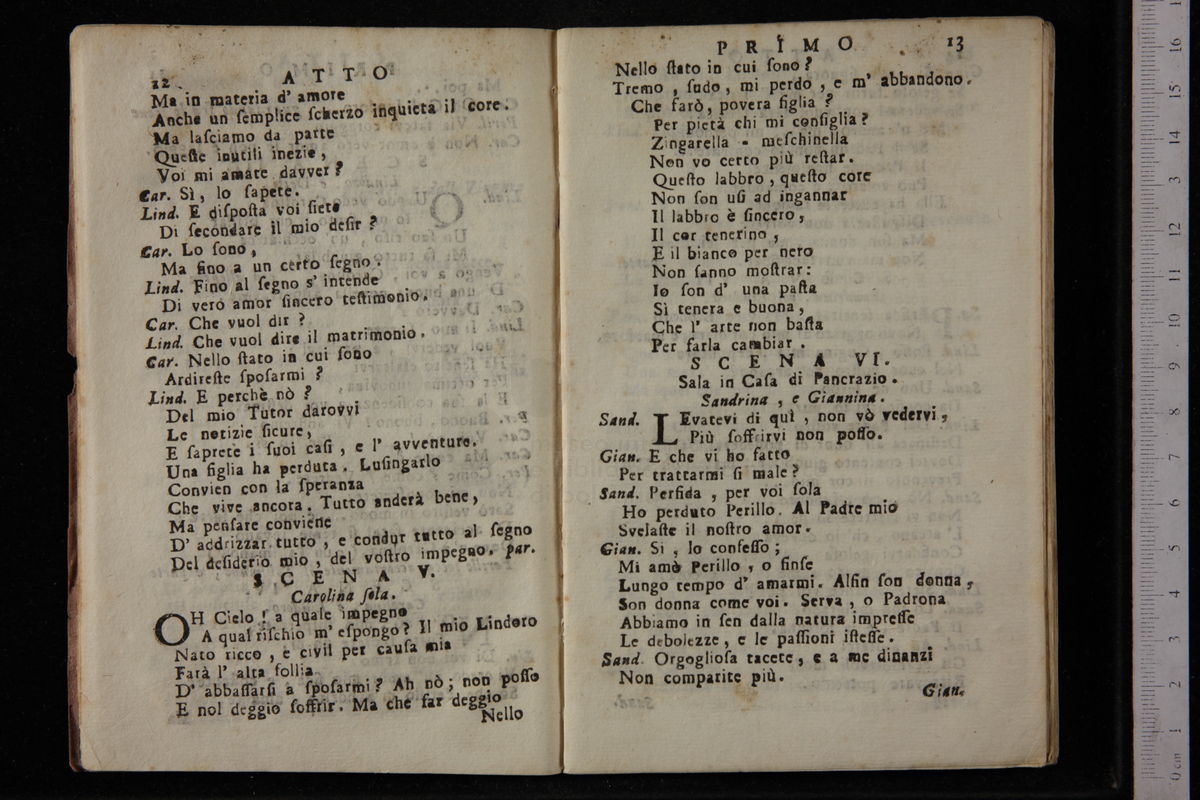 12 ATTO
Ma in materia d' amore
Anche un ſemplice ſcherzo inquieta il core.
Ma laſciamo da parte
Queſte inutili inezie,
Voi mi amate davver?
Car. Sì, lo ſapete.
Lind. E diſpoſta voi ſiete
Di ſecondare il mio deſir?
Car. Lo ſono,
Ma fino a un certo ſegno.
Lind. Fino al ſegno s' intende
Di vero amor ſincero teſtimonio.
Car. Che vuol dir?
Lind. Che vuol dire il matrimonio.
Car. Nello ſtato in cui ſono
Ardireſte ſpoſarmi?
Lind. E perchè nò?
Del mio Tutor darovvi
Le notizie ſicure,
E ſaprete i ſuoi caſi, e l' avventure.
Una figlia ha perduta. Luſingarlo
Convien con la ſperanza
Che vive ancora. Tutto anderà bene,
Ma penſare conviene
D' addrizzar tutto, e condur tutto al ſegno
Del deſiderio mio, del voſtro impegno. par.
SCENA V.
Carolina ſola.
OH Cielo! a quale impegno
A qual riſchio m' eſpongo? Il mio Lindoro
Nato ricco, e civil per cauſa mia
Farà l' alta follia
D' abbaſſarſi a ſpoſarmi? Ah nò; non poſſo
E nol deggio ſoffrir. Ma che far deggio
Nello
PRIMO 13
Nello ſtato in cui ſono?
Tremo, ſudo, mi perdo, e m' abbandono.
Che farò, povera figlia?
Per pietà chi mi conſiglia?
Zingarella - meſchinella
Non vo certo più reſtar.
Queſto labbro, queſto core
Non ſon uſi ad ingannar
Il labbro è ſincero,
Il cor tenerino,
E il bianco per nero
Non ſanno moſtrar:
Io ſon d' una paſta
Sì tenera e buona,
Che l' arte non baſta
Per farla cambiar.
SCENA VI.
Sala in Caſa di Pancrazio.
Sandrina, e Giannina.
Sand. LEvatevi di quì, non vò vedervi,
Più ſoffrirvi non poſſo.
Gian. E che vi ho fatto
Per trattarmi ſi male?
Sand. Perfida, per voi ſola
Ho perduto Perillo. Al Padre mio
Svelaſte il noſtro amor.
Gian. Si, lo confeſſo;
Mi amò Perillo, o finſe
Lungo tempo d' amarmi. Alfin ſon donna,
Son donna come voi. Serva, o Padrona
Abbiamo in ſen dalla natura impreſſe
Le debolezze, e le paſſioni iſteſſe.
Sand. Orgoglioſa tacete, e a me dinanzi
Non comparite più.
Gian.
0 cm 1 2 3 4 5 6 7 8 9 10 11 12 13 14 15 16